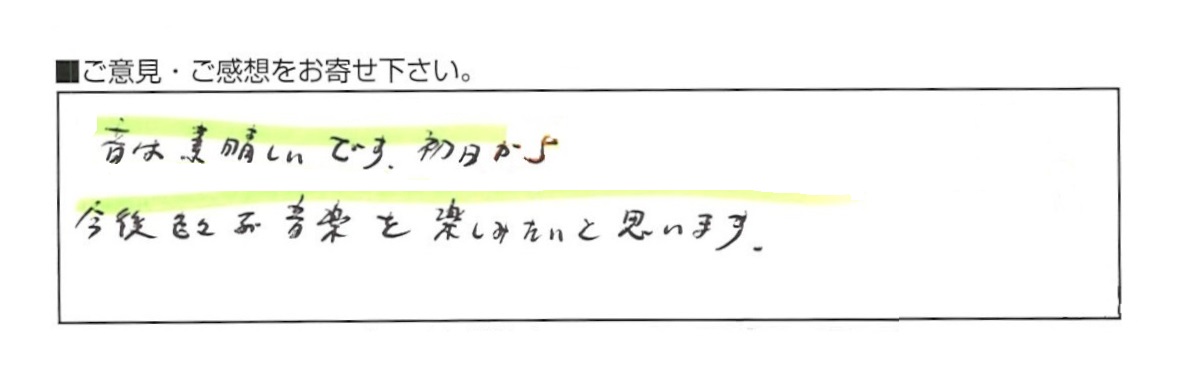 ■ご意見・ご感想をお寄せ下さい。
音は素晴しいです、初日から
今後色々な音楽を楽しみたいと思います。